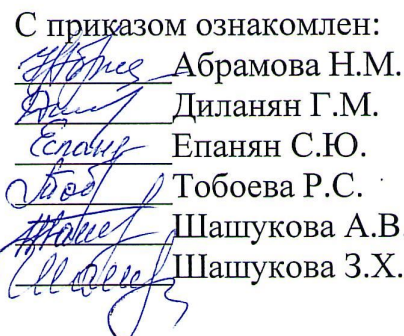 С приказом ознакомлен:
Абрамова Н.М.
Диланян Г.М.
Епанян С.Ю.
Тобоева Р.С.
Шашукова А.В
Шашукова З.Х.